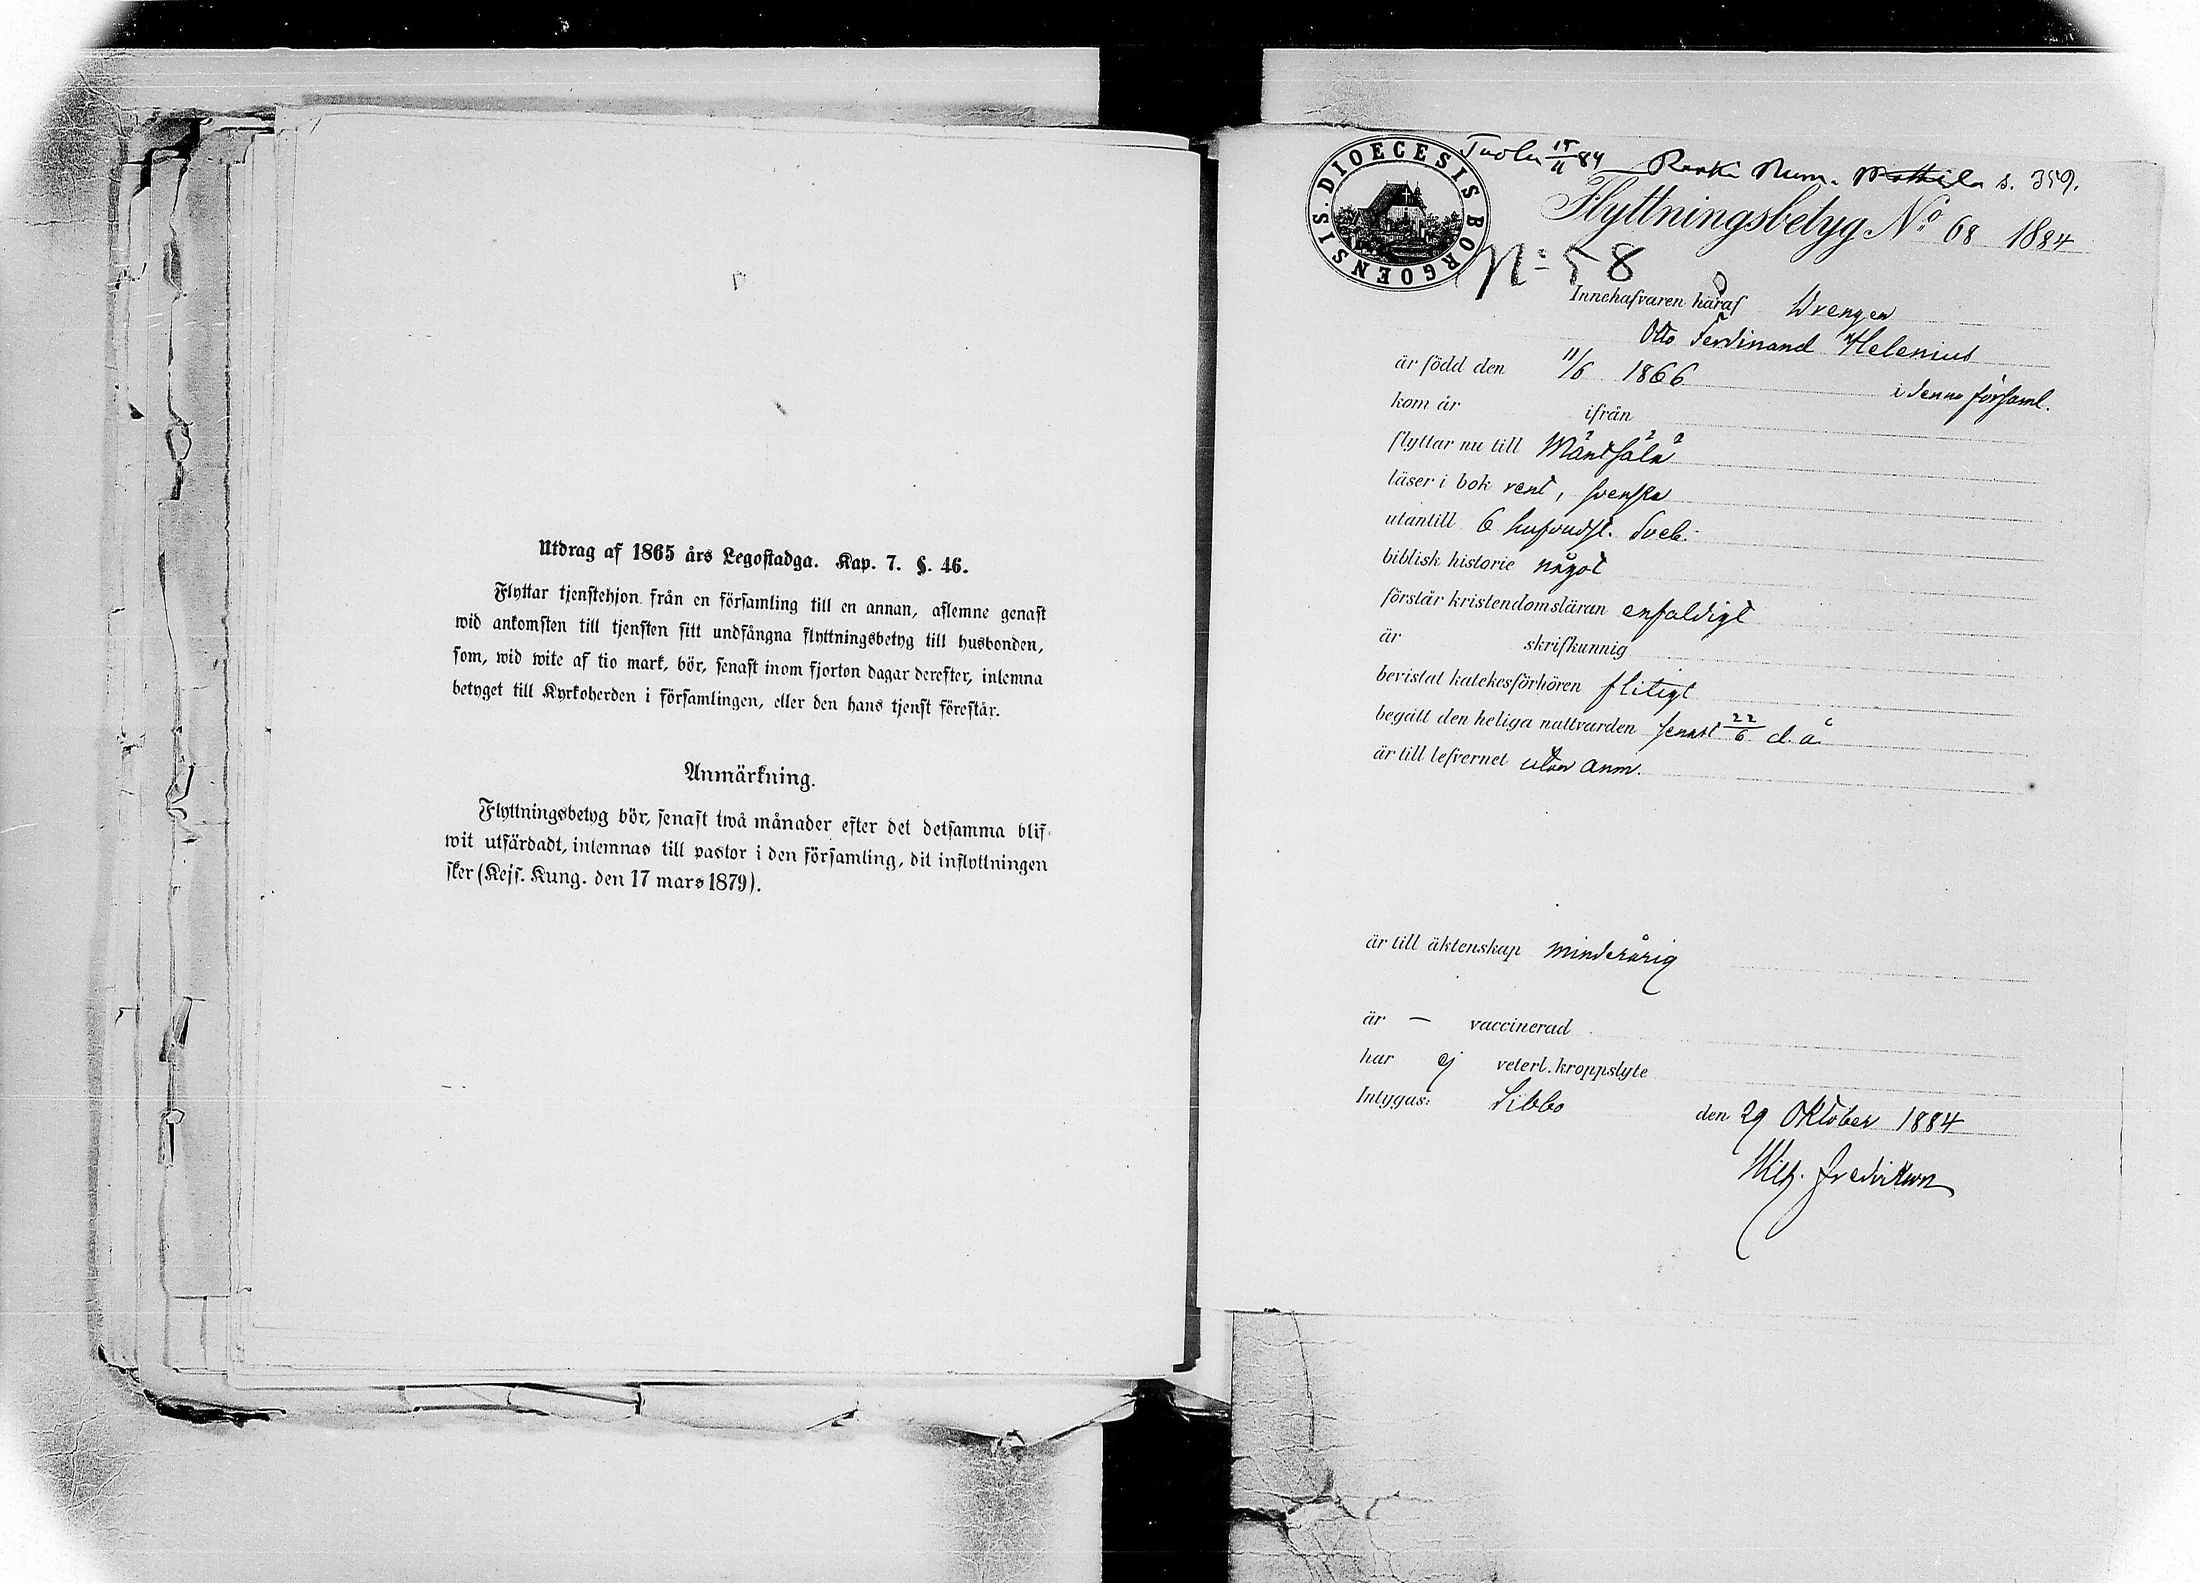 Utdrag af 1865 års Legostadga. Kap. 7. §. 46.
Flyttar tjenstehjon från en församling till en annan, aflemne genast
wid ankomsten till tjensten sitt undfångna flyttningsbetyg till husbonden,
som, wid wite af tio mark, bör, senast inom fjorton dagar derefter, inlemna
betyget till Kyrkoherden i församlingen, eller den hans tjenst förestår.
Anmärkning.
Flyttningsbetyg bör, senast twå månader efter det detsamma blif-
wit utfärdadt, inlemnas till pastor i den församling, dit inflyttningen
sker (Kejs. Kung. den 17 mars 1879).
15/11 84 s. 359.
DIOECESIS BORGOENSIS.
Flyttningsbetyg No 68 1884
No 58
Innehafvaren häraf Drengen
Otto Ferdinand Helenius
är född den 11/6 1866 i denna församl.
kom år ifrån
flyttar nu till Mäntsälä
läser i bok rent, svenska
utantill 6 hufvudst. Sveb.
biblisk historie något
förstår kristendomsläran enfaldigt
är skrifkunnig
bevistat katekesförhören flitigt
begått den heliga nattvarden senast 22/6 d. å.
är till lefvernet utan anm.
är till äktenskap minderårig
är — vaccinerad
har ej veterl. kroppslyte
Intygas: Sibbo den 29 Oktober 1884
Wilh. Fredrikson